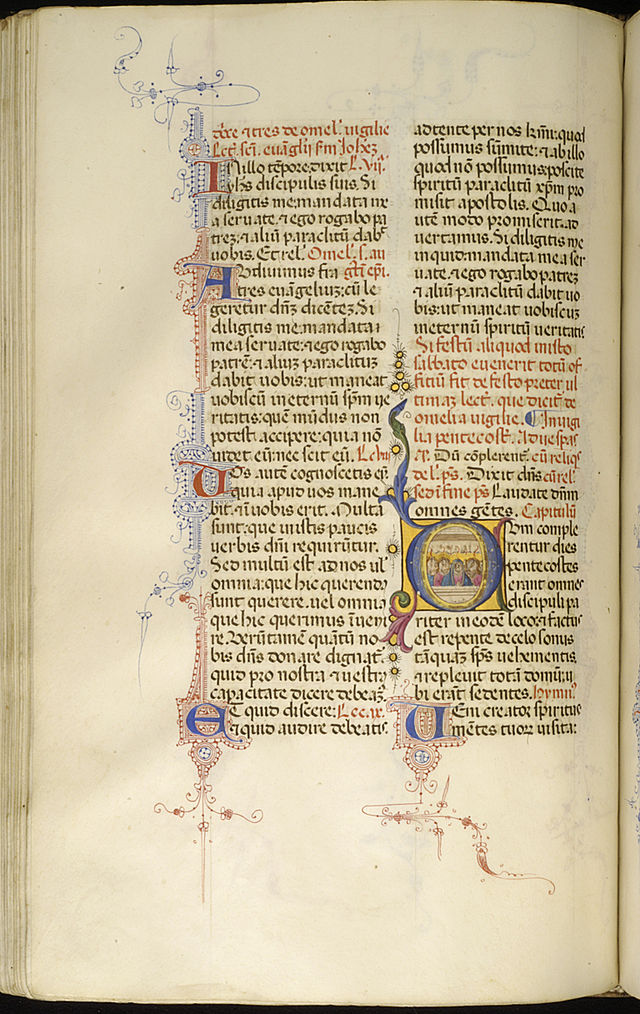 dixe et tres de omel. uigilie
Lect. sci. euãgłii s'm Johez.
In illo tẽpore: dixit L. vij.
yhs discipulis suis. Si
diligitis me: mandata me
a seruate. et ego rogabo pa
trez: et aliũ paraclitũ dab'
uobis. Et rel. Omel. s. au
Audiuimus fra gti. epi.
tres euangeliuz: cũ le
geretur dñz dicẽtez. Si
diligitis me: mandata
mea seruate: et ego rogabo
patrẽ: et aliuz paraclituz
dabit uobis: ut maneat
uobiscũ in eternũ spm ue
ritatis: quẽ mũdus non
potest accipere: quia nõ
uidet eũ: nec scit eũ. L. viij
Uos autẽ cognoscetis eũ
quia apud uos mane
bit: et ĩ uobis erit. Multa
sunt: que in istis paucis
uerbis dñi requirũtur.
Sed multũ est ad nos ul'
omnia: que hic querenda
sunt querere. uel omnia
que hic querimus ĩueni
re. Verũtamẽ quãtũ no
bis dñs donare dignat'.
quid pro nostra et uestra
capacitate dicere debeaz.
Et quid discere: Lec. ix.
et quid audire debeatis.
adtente per nos kmi: quod
possumus sumite: et ab illo
quod nõ possumus: poscite
spiritũ paraclitũ xpm pro
misit apostolis. Quo a
utẽ modo promiserit: ad
uertamus. Si diligitis me
inquid: mandata mea ser
uate. et ego rogabo patrez
et aliũ paraclitũ dabit uo
bis: ut maneat uobiscuz
in eternũ spiritũ ueritatis
Si festũ aliquod in isto
sabbato euenerit totũ of
fitiũ fit de festo preter ul
timaz lect. que dicit' de
omelia uigilie. In uigi
lia pentecost'. Ad uespas
Dũ cõplerent'. cũ reliqs
de l. ps. Dixit dñs cũ rel.
sed in fine ps Laudate dñm
omnes gẽtes. Capitulũ
Dum comple
rentur dies
pentecostes
erant omnes
discipuli pa
riter in eodẽ loco: et factus
est repente de celo sonus
tãquaz sps uehementis.
et repleuit totã domũ: u
bi erãt sedentes. hymn'.
Ueni creator spiritus
mẽtes tuoz uisita: